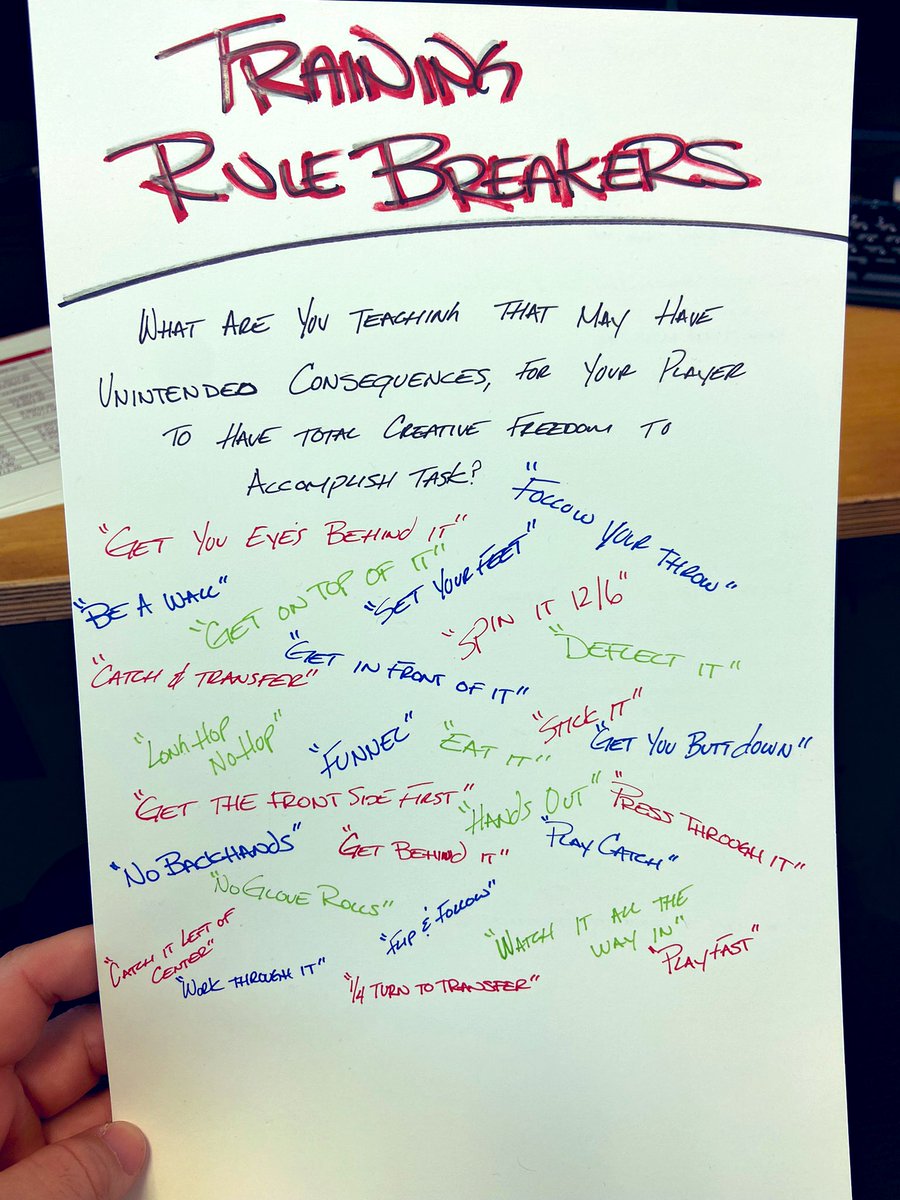 TRAINING
RULE BREAKERS
WHAT ARE YOU TEACHING THAT MAY HAVE
UNINTENDED CONSEQUENCES, FOR YOUR PLAYER
TO HAVE TOTAL CREATIVE FREEDOM TO
ACCOMPLISH TASK?
"FOLLOW YOUR THROW"
"GET YOU EYE'S BEHIND IT"
"BE A WALL"
"GET ON TOP OF IT"
"SET YOUR FEET"
"SPIN IT 12/6"
"DEFLECT IT"
"CATCH & TRANSFER"
"GET IN FRONT OF IT"
"STICK IT"
"LONG HOP
NO HOP"
"FUNNEL"
"EAT IT"
"GET YOU BUTT DOWN"
"GET THE FRONT SIDE FIRST"
"HANDS OUT"
"PRESS THROUGH IT"
"NO BACKHANDS"
"GET BEHIND IT"
"PLAY CATCH"
"NO GLOVE ROLLS"
"FLIP & FOLLOW"
"WATCH IT ALL THE
WAY IN"
"PLAY FAST"
"CATCH IT LEFT OF
CENTER"
"WORK THROUGH IT"
"1/4 TURN TO TRANSFER"